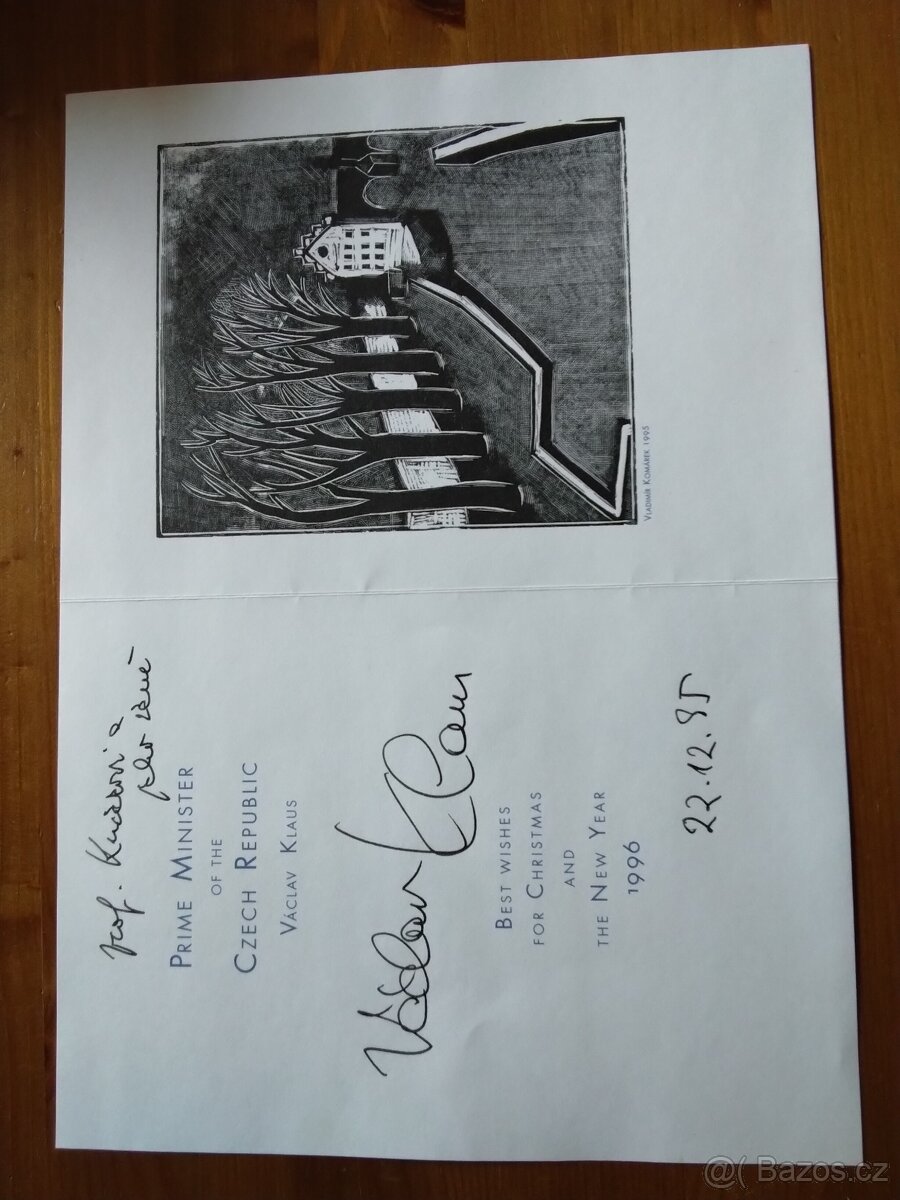 Prof.
PRIME MINISTER
OF THE
CZECH REPUBLIC
VÁCLAV KLAUS
Václav Klaus
BEST WISHES
FOR CHRISTMAS
AND
THE NEW YEAR
1996
22.12.95
VLADIMÍR KOMÁREK 1995
@( Bazos.cz